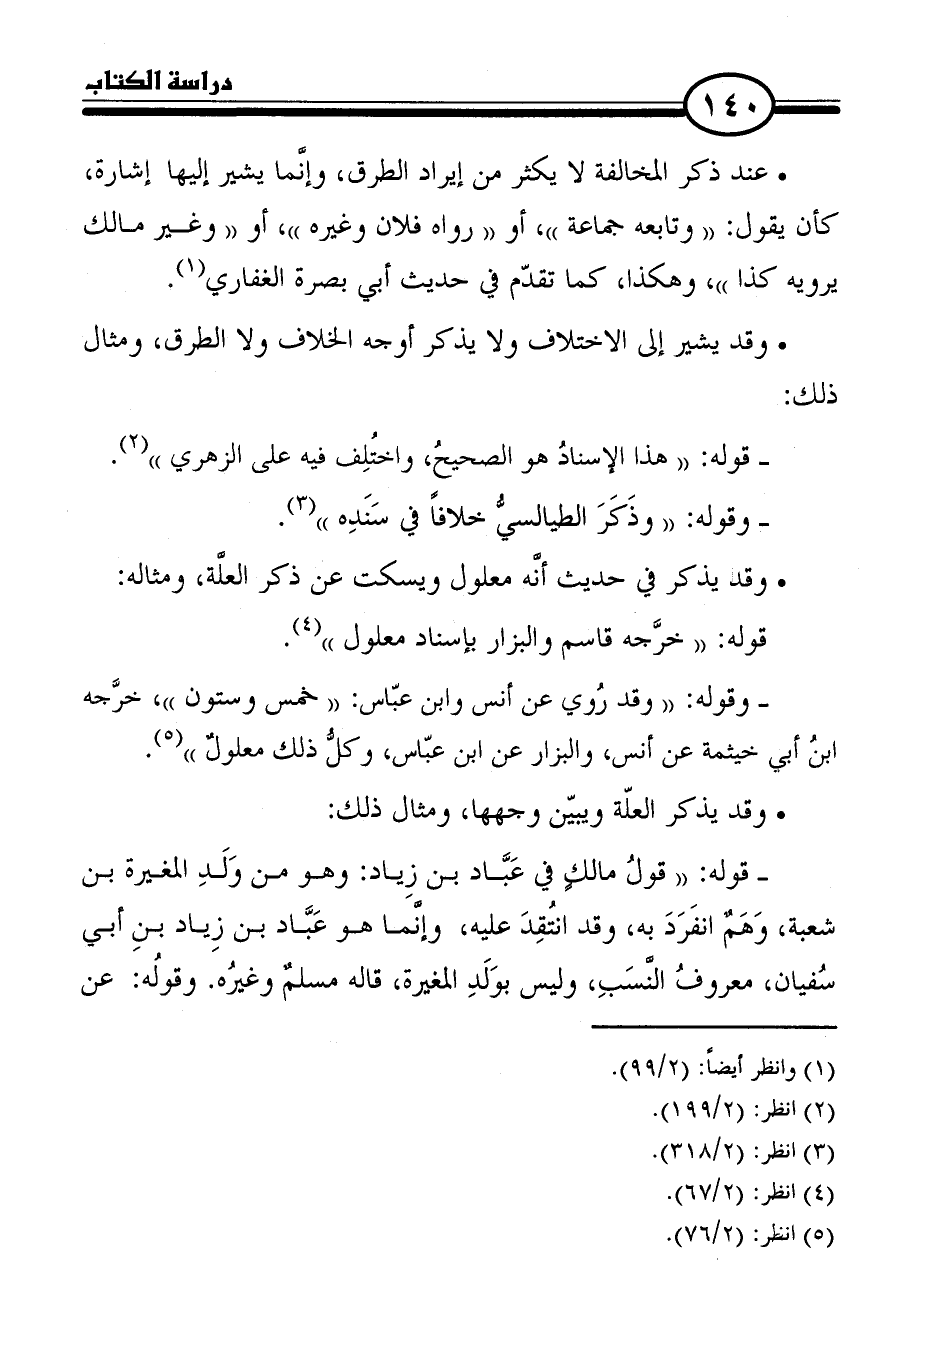 دراسة الكتاب
١٤٠
• عند ذكر المخالفة لا يكثر من إيراد الطرق، وإنَّما يشير إليها إشارة،
كأن يقول: « وتابعه جماعة »، أو « رواه فلان وغيره »، أو « وغـير مـالك
يرويه كذا »، وهكذا، كما تقدّم في حديث أبي بصرة الغفاري(١).
• وقد يشير إلى الاختلاف ولا يذكر أوجه الخلاف ولا الطرق، ومثال
ذلك:
ـ قوله: « هذا الإسنادُ هو الصحيحُ، واختُلِف فيه على الزهري »(٢).
ـ وقوله: « وذَكَرَ الطيالسيُّ خلافاً في سَنَدِه »(٣).
• وقد يذكر في حديث أنَّه معلول ويسكت عن ذكر العلَّة، ومثاله:
قوله: « خرَّجه قاسم والبزار بإسناد معلول »(٤).
ـ وقوله: « وقد رُوي عن أنس وابن عبّاس: « خمس وستون »، خرَّجه
ابنُ أبي خيثمة عن أنس، والبزار عن ابن عبّاس، وكلُّ ذلك معلولٌ »(٥).
• وقد يذكر العلّة ويبيّن وجهها، ومثال ذلك:
ـ قوله: « قولُ مالكٍ في عَبَّـاد بـن زِيـاد: وهـو مـن وَلَـدِ المغيرة بـن
شعبة، وَهَمٌ انفَرَدَ به، وقد انتُقِدَ عليه، وإنَّمـا هـو عَبَّـاد بـن زِيـاد بـنِ أبـي
سُفيان، معروفُ النَّسَبِ، وليس بوَلَدِ المغيرة، قاله مسلمٌ وغيرُه. وقولُه: عن
(١) وانظر أيضاً: (٩٩/٢).
(٢) انظر: (١٩٩/٢).
(٣) انظر: (٣١٨/٢).
(٤) انظر: (٦٧/٢).
(٥) انظر: (٧٦/٢).